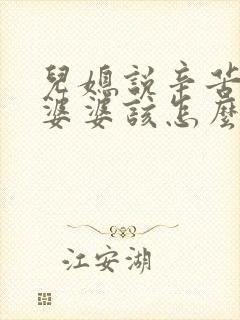 兒媳說辛苦
婆婆該怎麼
江安湖